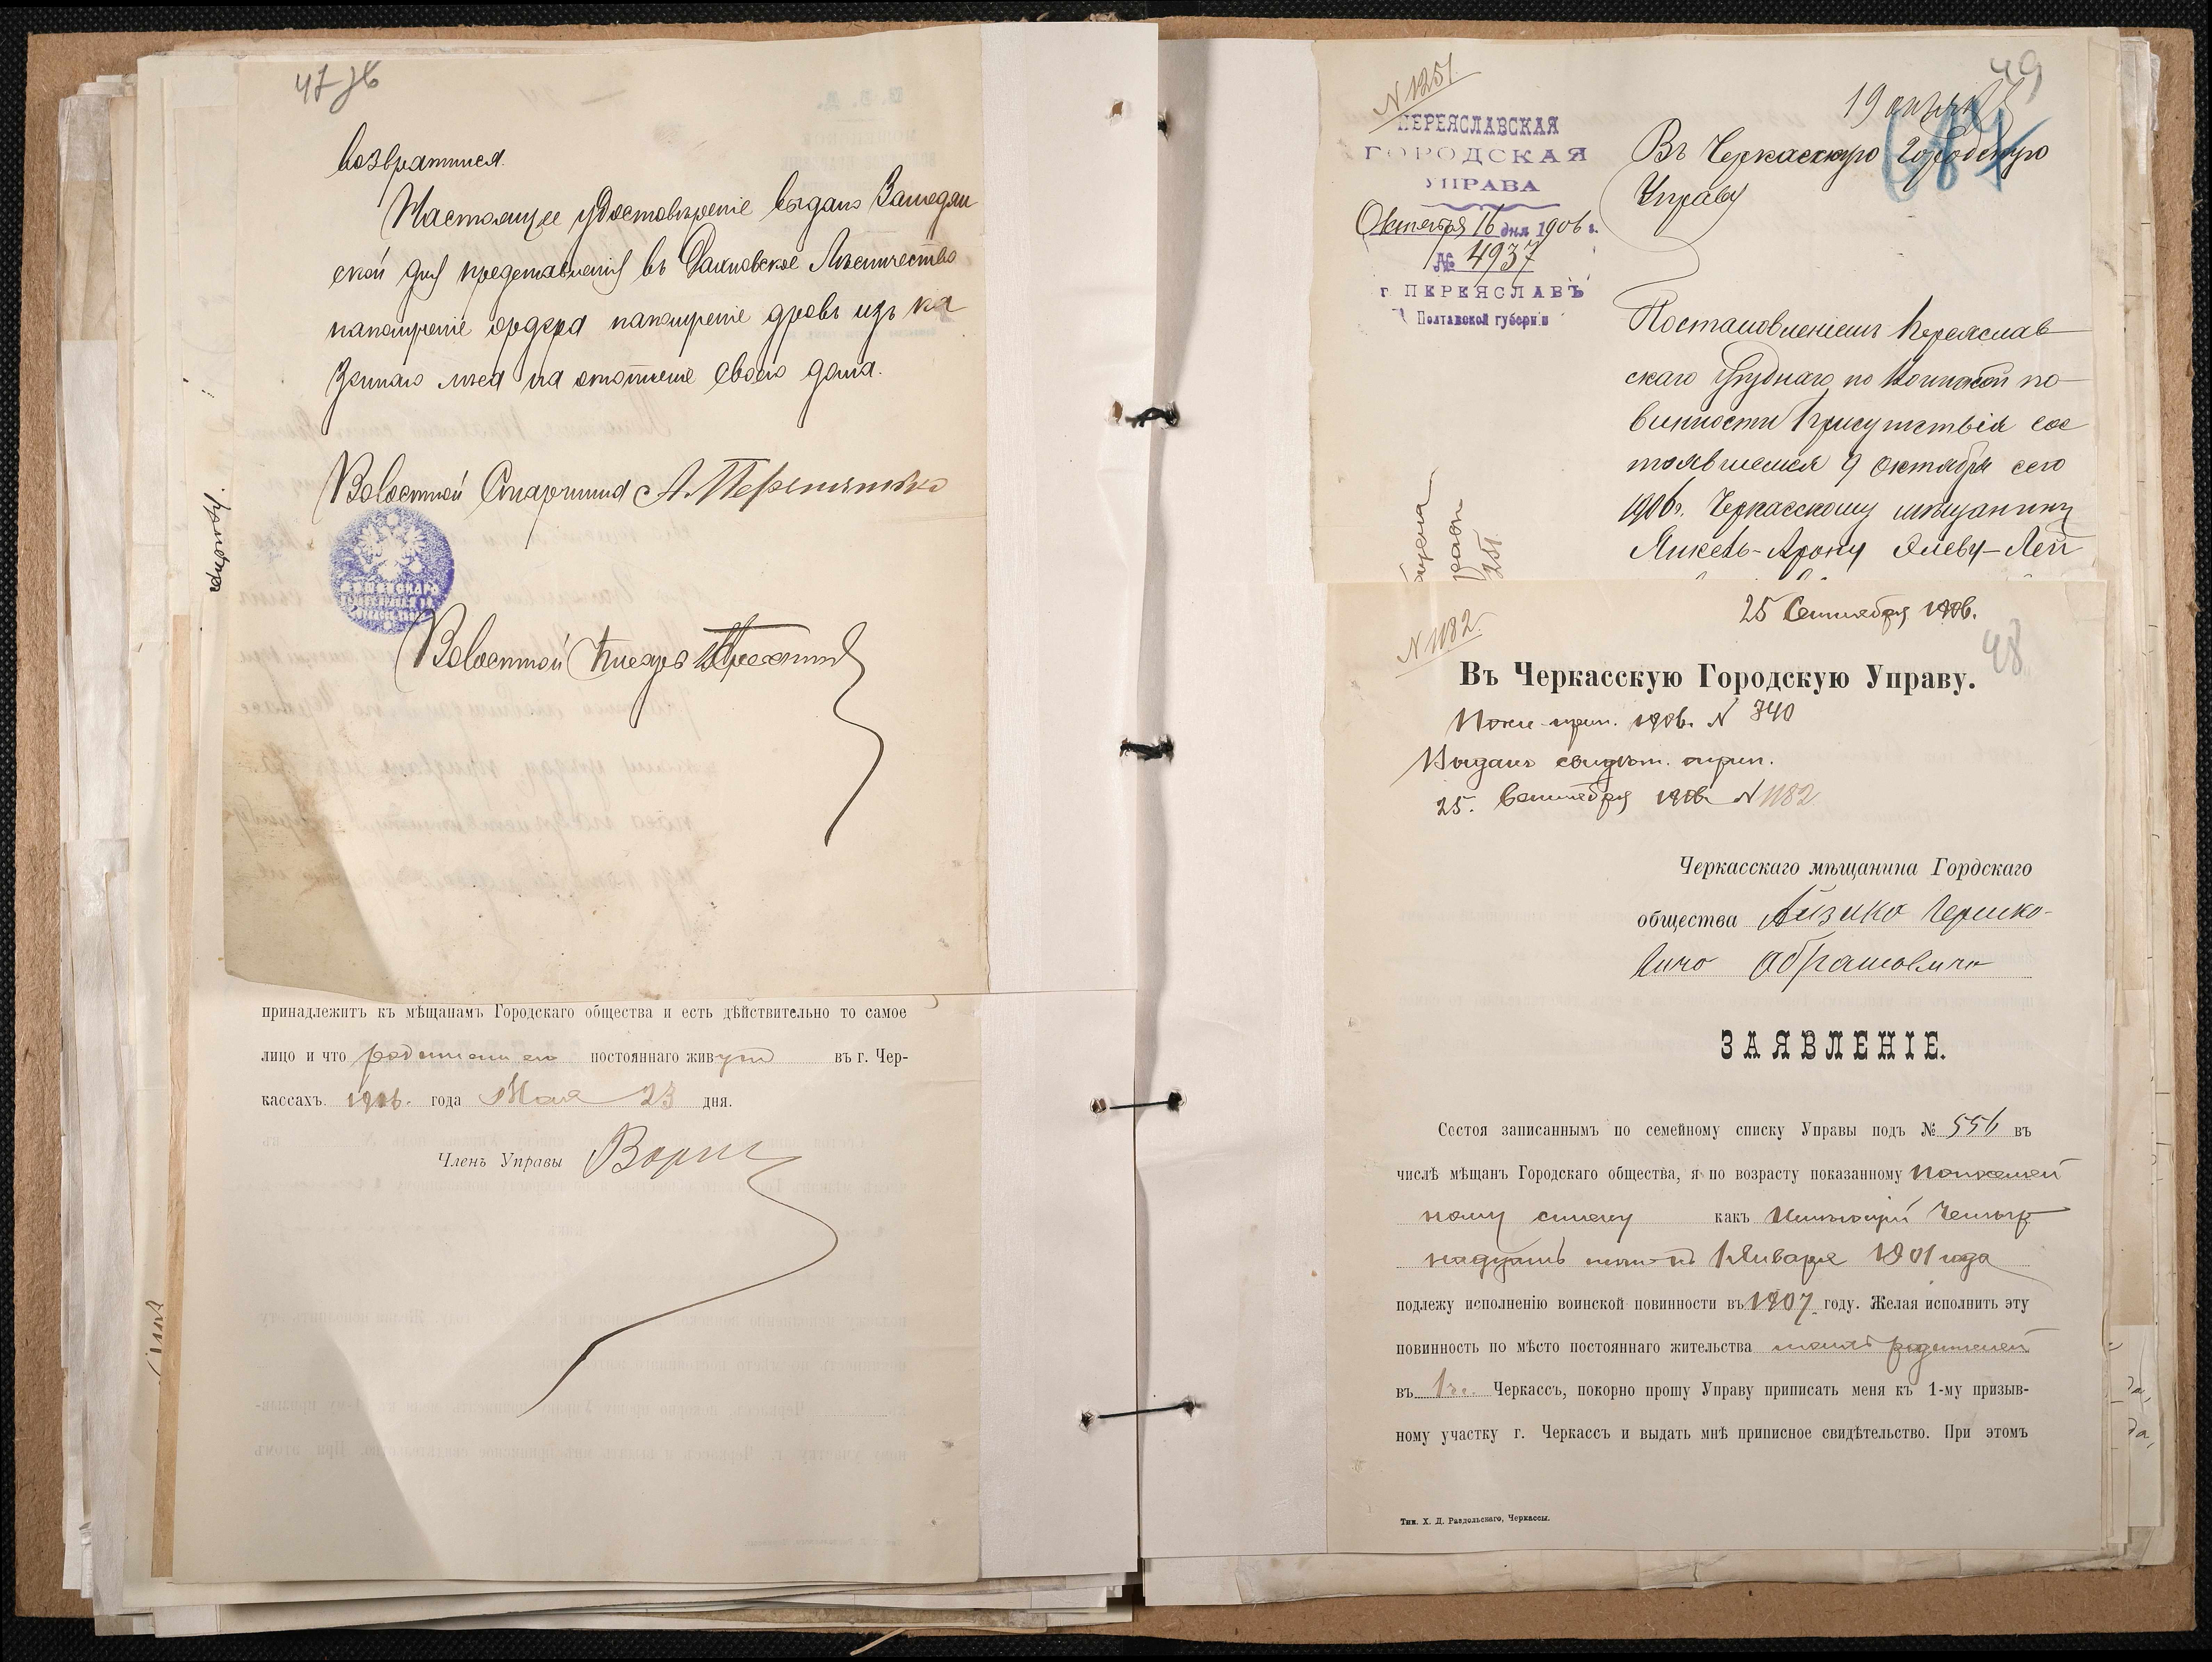 возвратился.
Настоящее удостовѣреніе выдано
ской для представленія въ Дахновское Лѣсничество
наполученіе ордера наполученіе дровъ изъ ка
зеннаго лѣса на отопленіе своего дома.
Волостной Старшина А.
Волостной Писарь
принадлежитъ къ мѣщанамъ Городскаго общества и есть дѣйствительно то самое
лицо и что родители его постояннаго живутъ въ г. Чер-
кассахъ. 1906. года Мая 23 дня.
Членъ Управы
N 1251.
49
19 октября
ПЕРЕЯСЛАВСКАЯ
ГОРОДСКАЯ
УПРАВА
Октября 16 дня 1906 г.
№ 4937
г. ПЕРЕЯСЛАВЪ
Полтавской губерніи
Въ Черкасскую Городскую
Управу
Постановленіемъ Переяслав
скаго Уѣзднаго по Воинской по-
винности Присутствія сос
тоявшемся 9 октября сего
1906г. Черкасскому мѣщанину
Янкель-Арону Элеву-Лей
251
25 Сентября 1906.
N 1182.
48
Въ Черкасскую Городскую Управу.
1906. N 740
Выдано свидѣт. припис.
25. Сентября 1906 N 1182
Черкасскаго мѣщанина Гордскаго
общества Айзика Гершко-
вича Абрамовича
ЗАЯВЛЕНІЕ.
Состоя записаннымъ по семейному списку Управы подъ № 556 въ
числѣ мѣщанъ Городскаго общества, я по возрасту показанному
ному списку какъ имѣющій Четыр
надцать лѣтъ къ 1 Января 1901 года
подлежу исполненію воинской повинности въ 1907 году. Желая исполнить эту
повинность по мѣсто постояннаго жительства моихъ родителей
въ г. Черкассъ, покорно прошу Управу приписать меня къ 1-му призыв-
ному участку г. Черкассъ и выдать мнѣ приписное свидѣтельство. При этомъ
Тип. Х. Д. Раздольскаго, Черкассы.